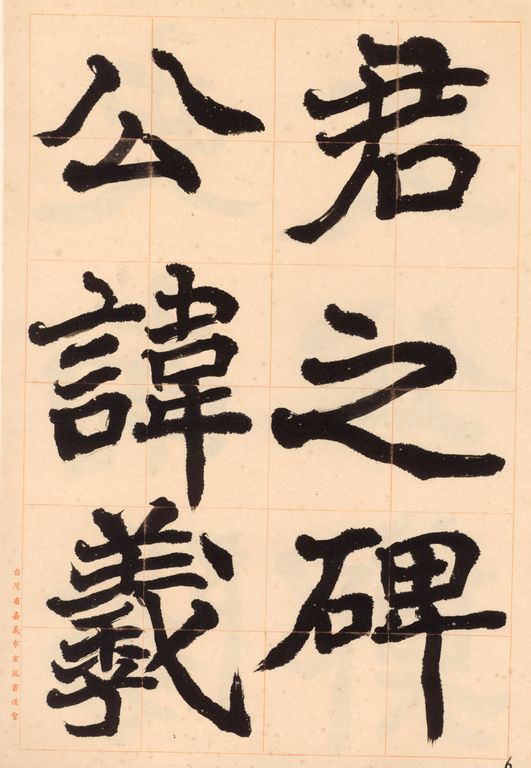 君之碑
公諱羲
台灣省嘉義市玄風書道會
6